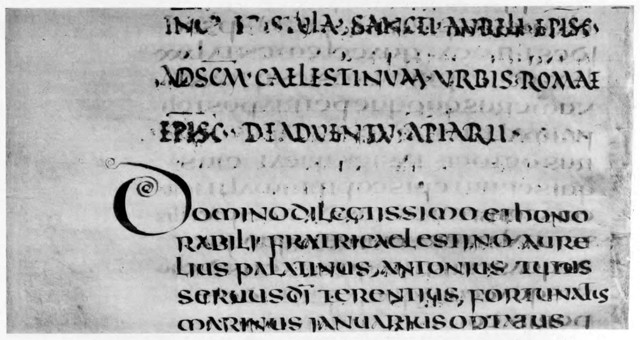 INC̄ EPISTULA· SANCTI· AURELI· EPISC·
ADSCM̄· CAELESTINUM· URBIS· ROMAE
EPISC· DEADUENTU· APIARII·
DOMINODILECTISSIMOETHONO
RABILI FRATRICAELESTINO AURE
LIUS PALATINUS, ANTONIUS TUTUS
SERUUSDĪ TERENTIUS, FORTUNATIS
MARINUS IANUARIUSOPTATUS